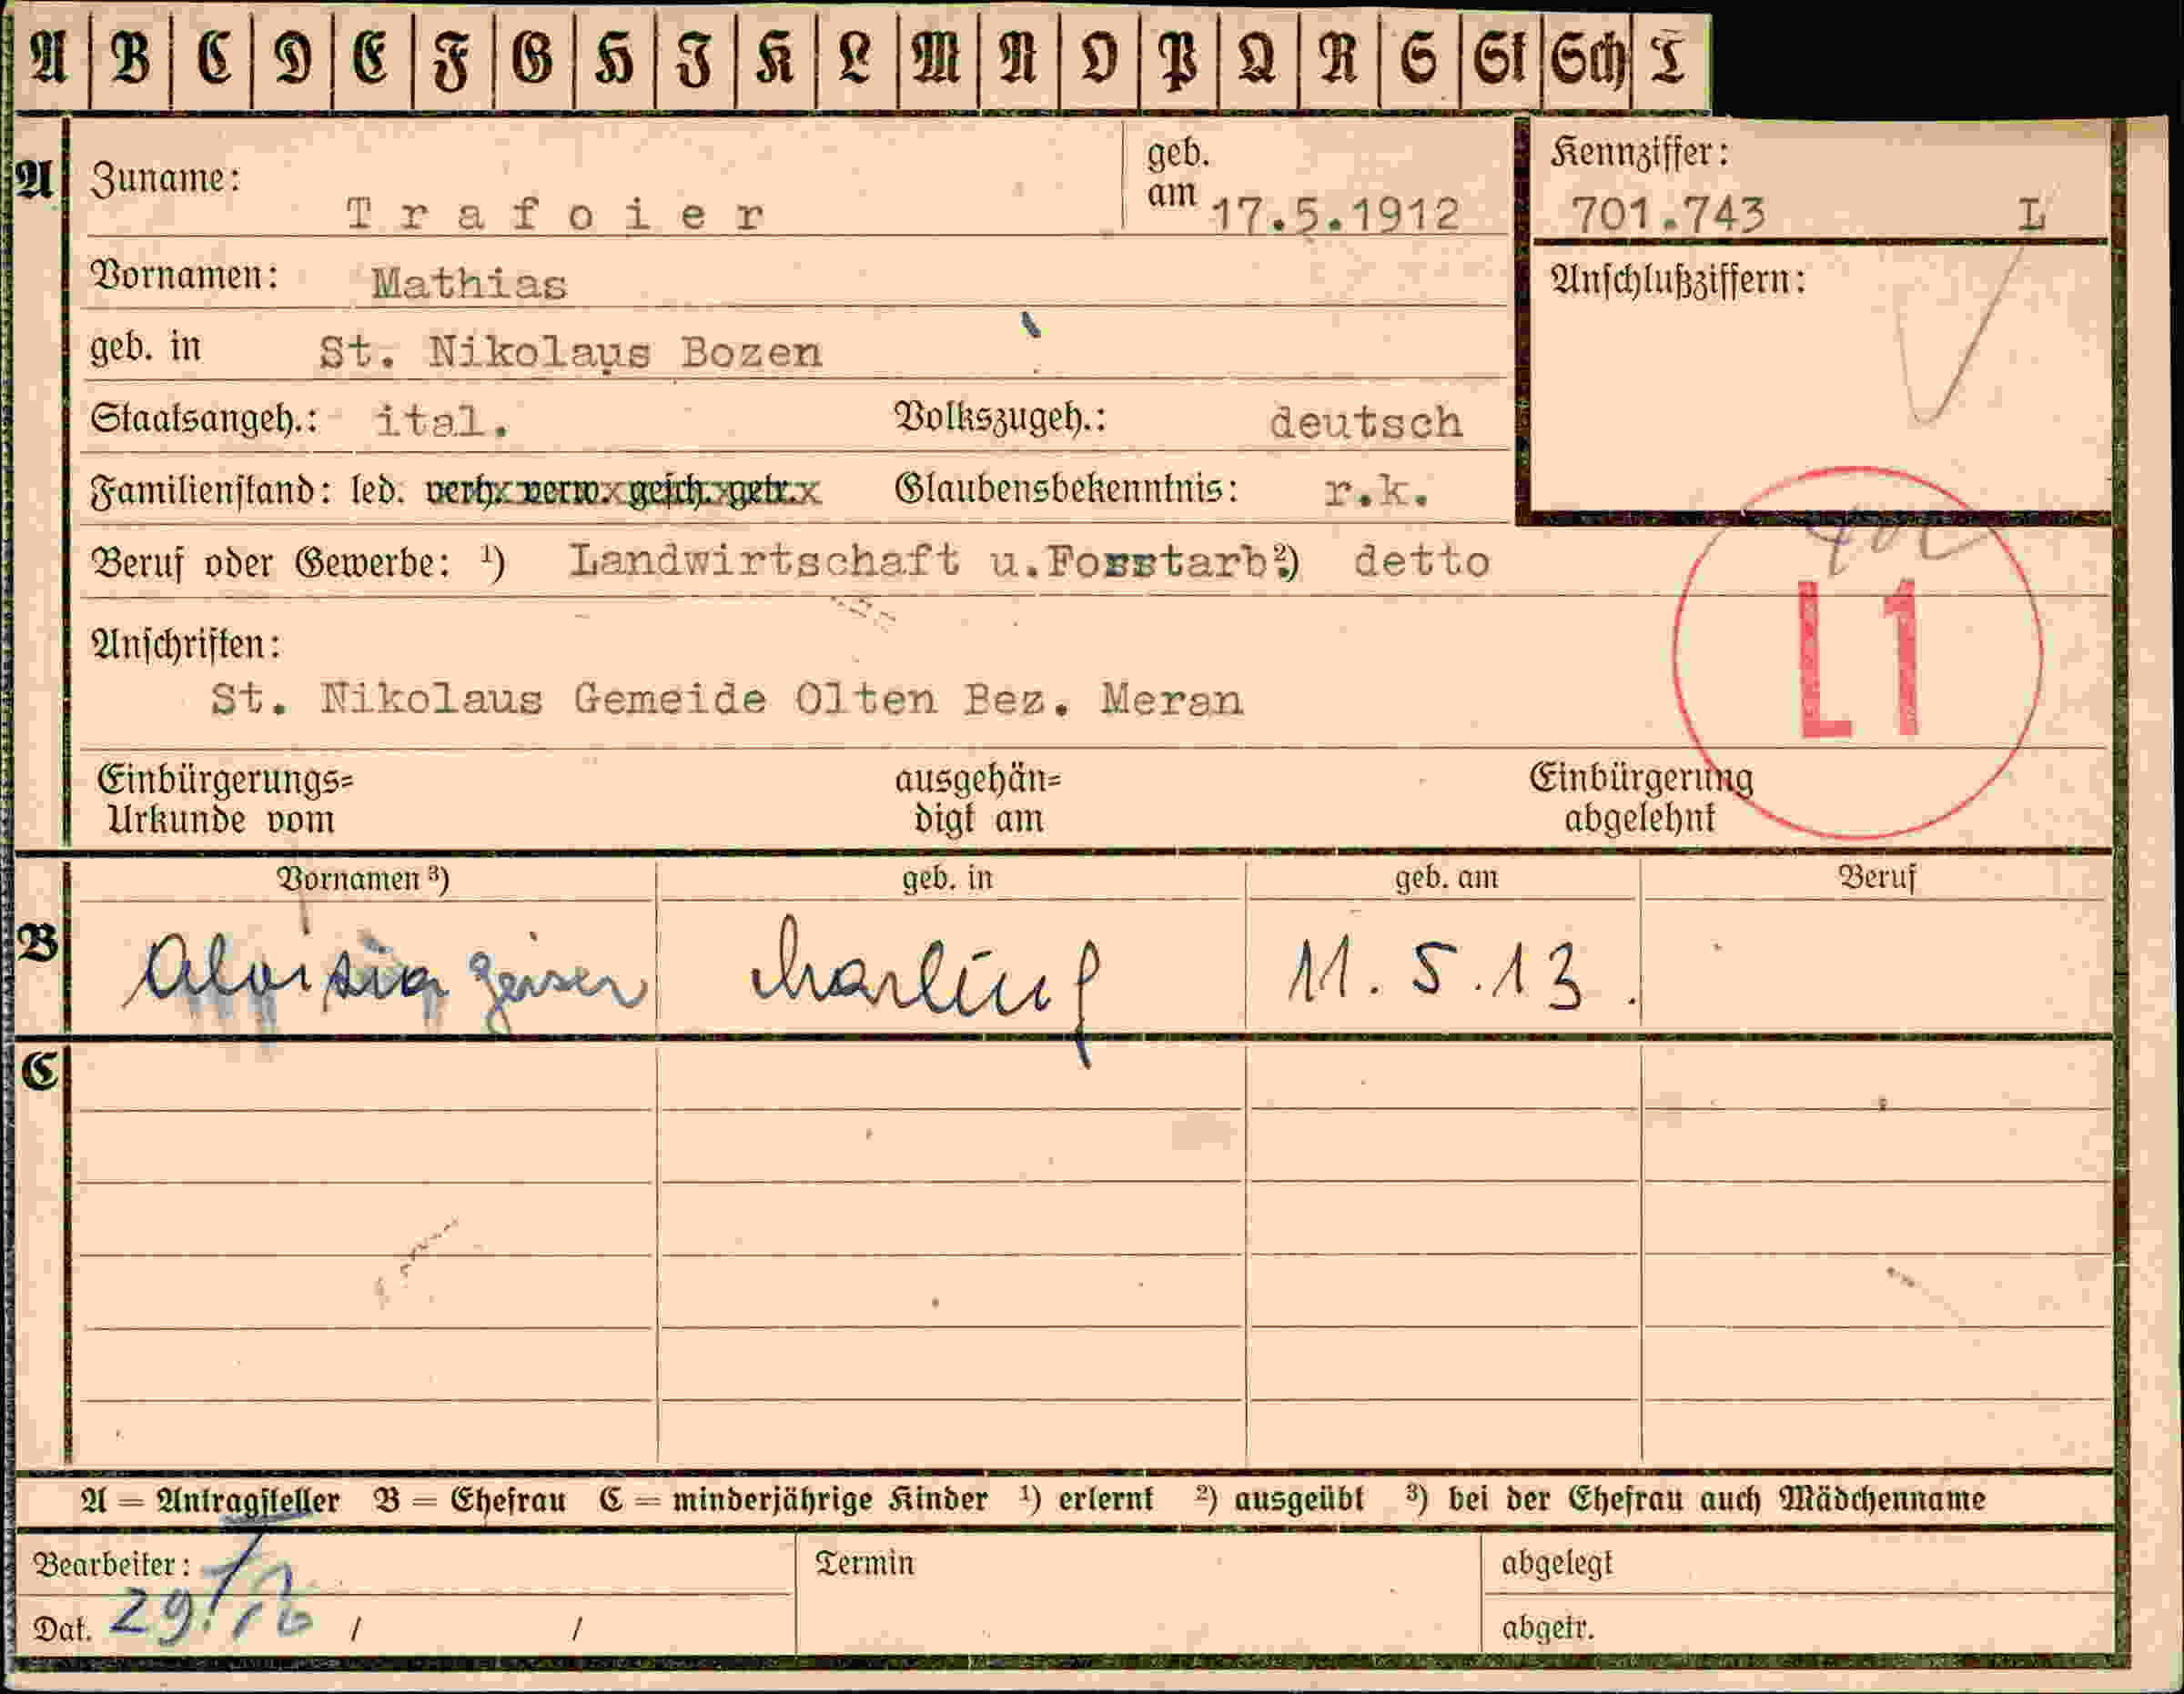 A B C D E F G H I K L M N O P Q R S St Sch T
A Zuname: Trafoier geb. am 17.5.1912
Kennziffer: 701.743 L
Vornamen: Mathias
Anschlußziffern:
geb. in St. Nikolaus Bozen
Staatsangeh.: ital. Volkszugeh.: deutsch
Familienstand: led. verh. verw. gesch. getr. Glaubensbekenntnis: r.k.
Beruf oder Gewerbe: ¹) Landwirtschaft u.Forstarb ²) detto
L1
Anschriften:
St. Nikolaus Gemeide Olten Bez. Meran
Einbürgerungs= ausgehän= Einbürgerung
Urkunde vom digt am abgelehnt
Vornamen ³) geb. in geb. am Beruf
B Aloisia Marling 11.5.13.
C
A = Antragsteller B = Ehefrau C = minderjährige Kinder ¹) erlernt ²) ausgeübt ³) bei der Ehefrau auch Mädchenname
Bearbeiter: Termin abgelegt
Dat. 29. / / abgetr.